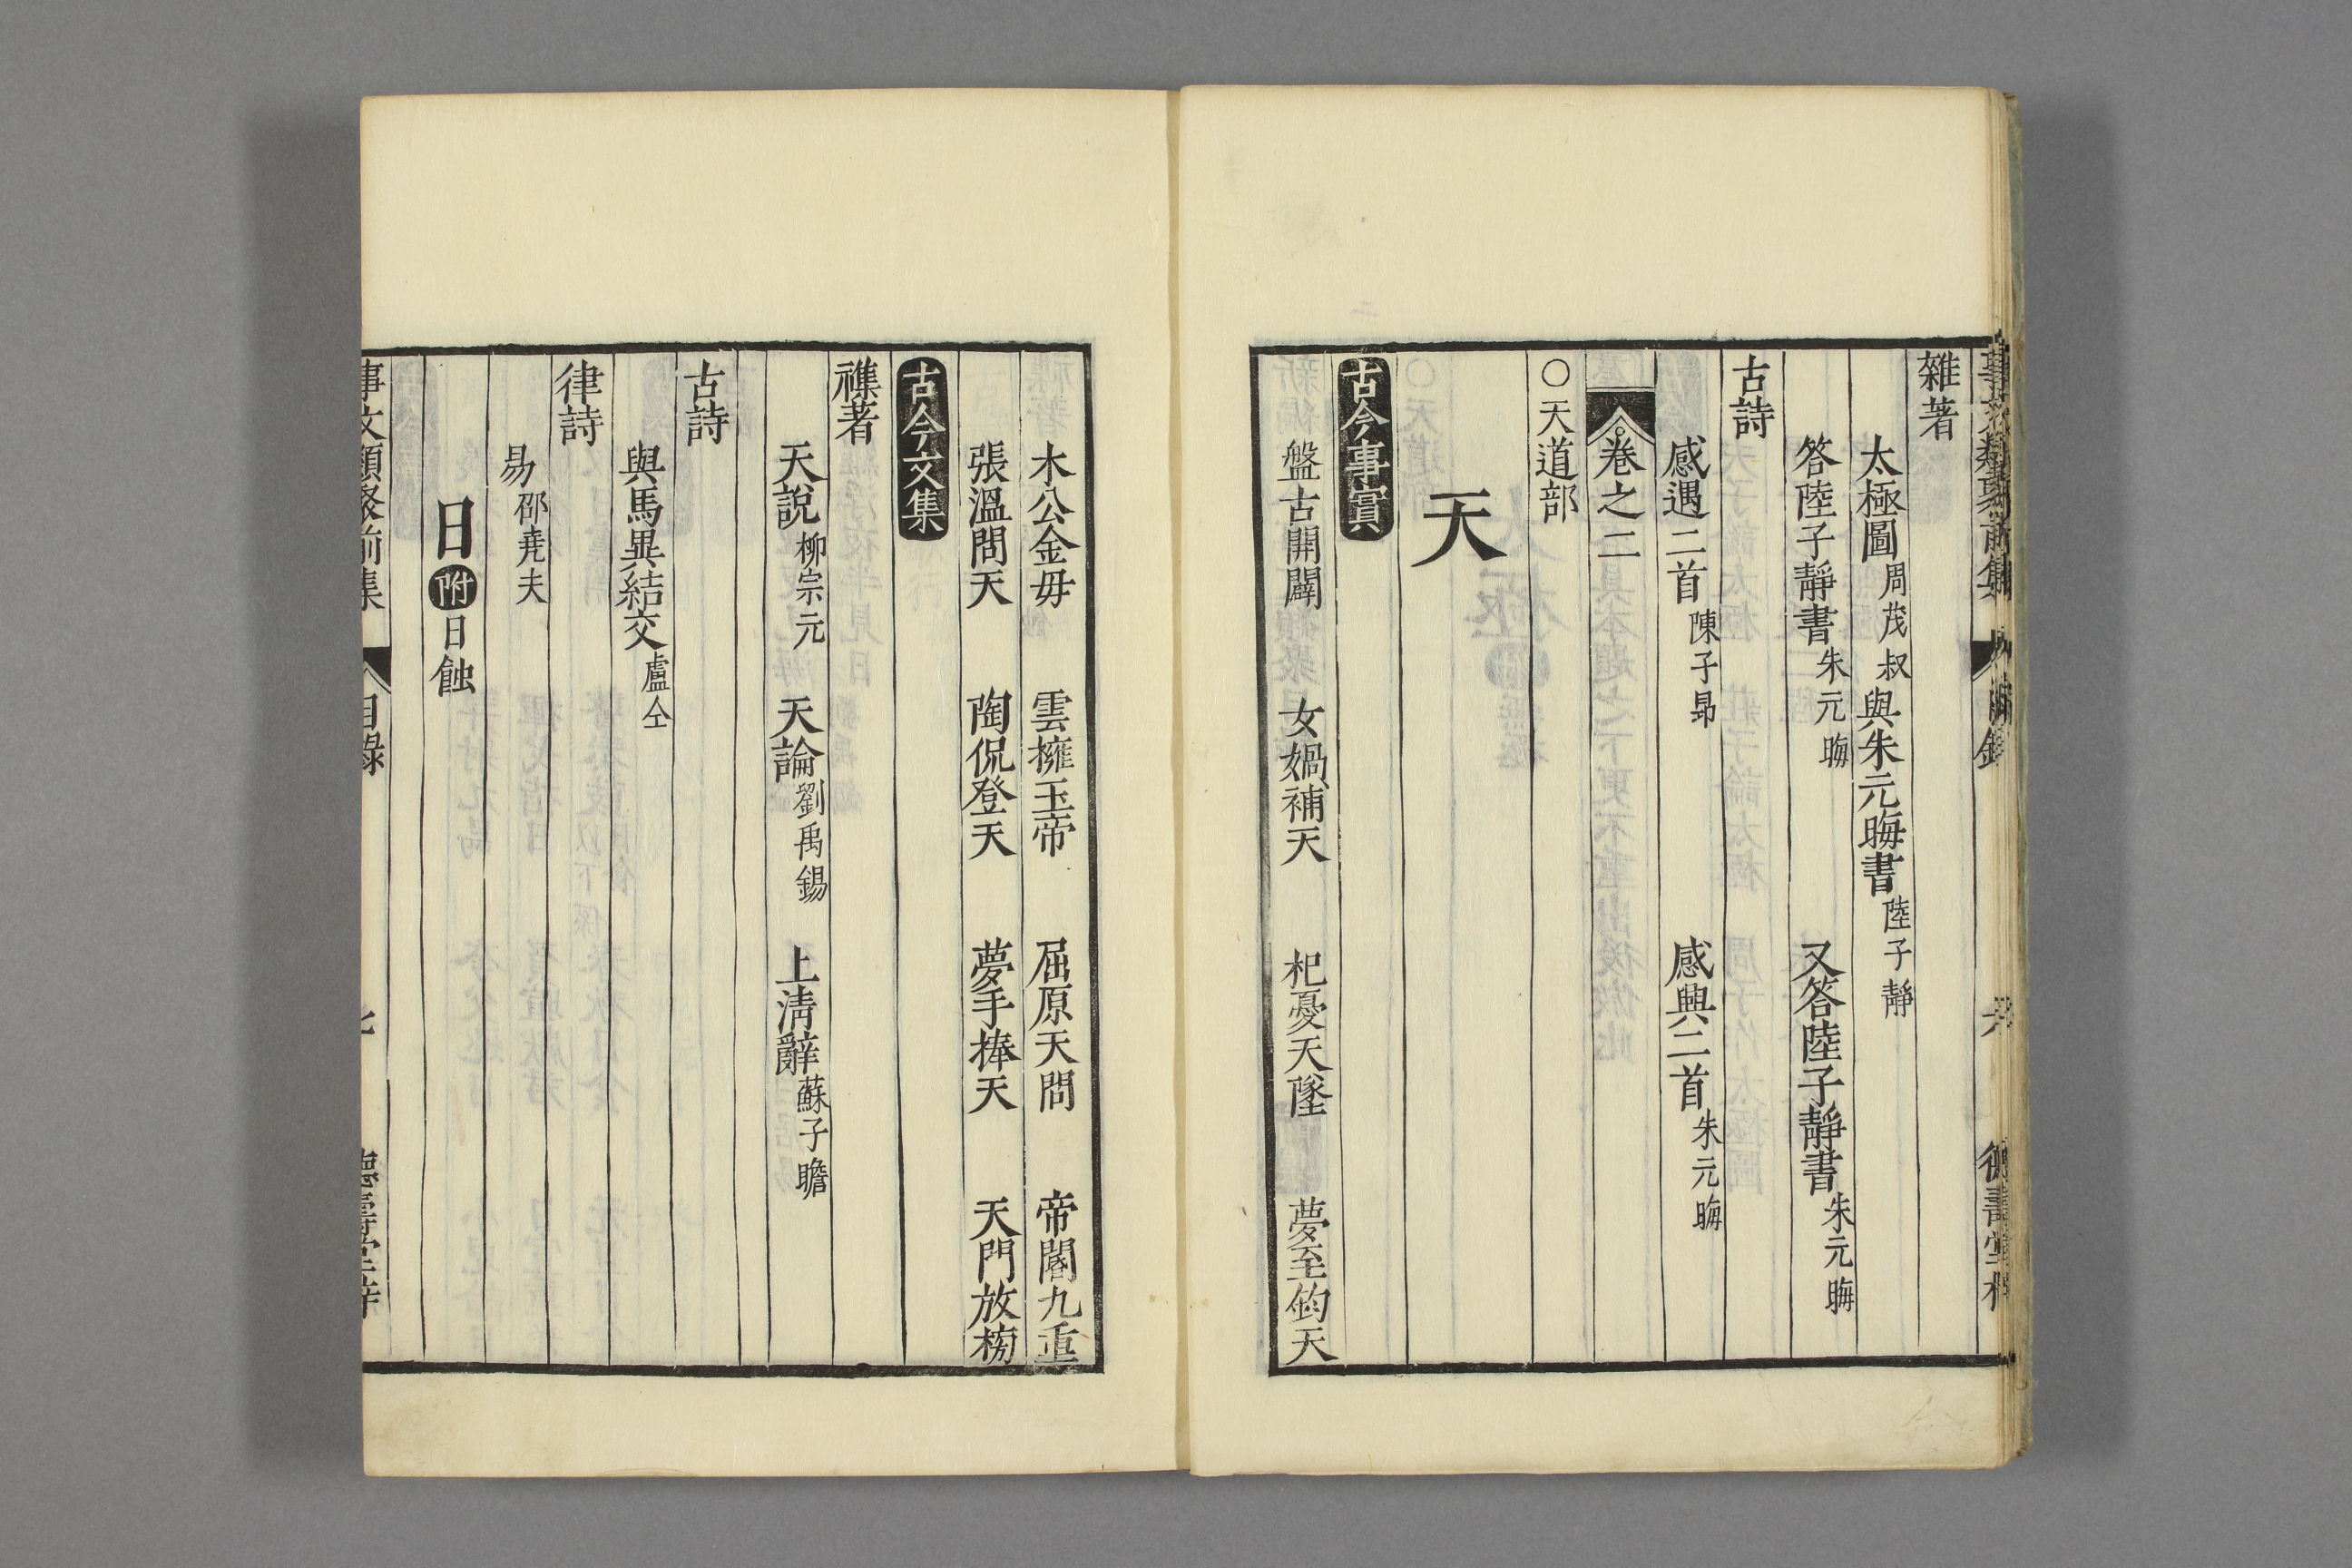 雜著
太極圖周茂叔與朱元晦書陸子靜
答陸子靜書朱元晦 又答陸子靜書朱元晦
古詩
感遇二首陳子昻 感興二首朱元晦
卷之二
○天道部
天
古今事實
盤古開闢 女媧補天 杞憂天墜 夢至鈞天
木公金母 雲擁玉帝 屈原天問 帝閽九重
張溫問天 陶侃登天 夢手捧天 天門放榜
古今文集
襍著
天說柳宗元 天論劉禹錫 上清辭蘇子瞻
古詩
與馬異結交盧仝
律詩
昜邵堯夫
日附日蝕
事文類聚前集 目錄 七 德壽堂梓